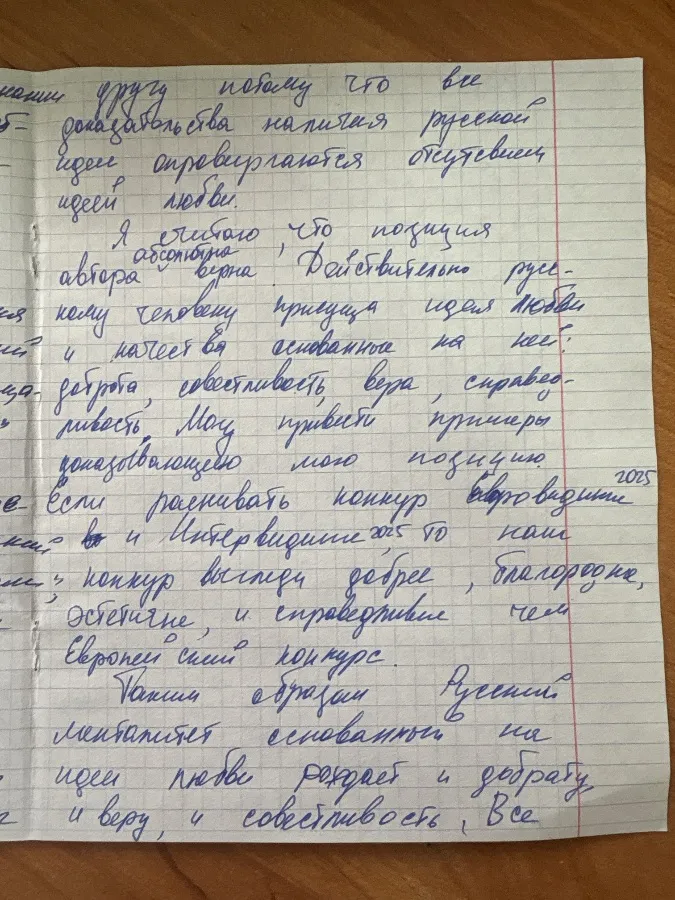 другу потому что все
доказательства наличия русской
идеи опровиргаются отсутсвием
идей любви.
Я считаю, что позиция
автора абсолютна верна. Действительно русс-
кому человеку присуща идея любви
и качества основанные на ней:
доброта, совестливость, вера, справед-
ливость. Могу привести примеры
доказывающею мою позицию.
Если расскивать конкур Евровидиние 2025
и Интервидиние 2025, то наш
конкур выгледи добрее, благородна,
эстетичне, и справедливие чем
Европейский конкурс.
Таким образам Русский
менталитет основанный на
идеи любви раждает и доброту,
и веру, и совестливость, Все